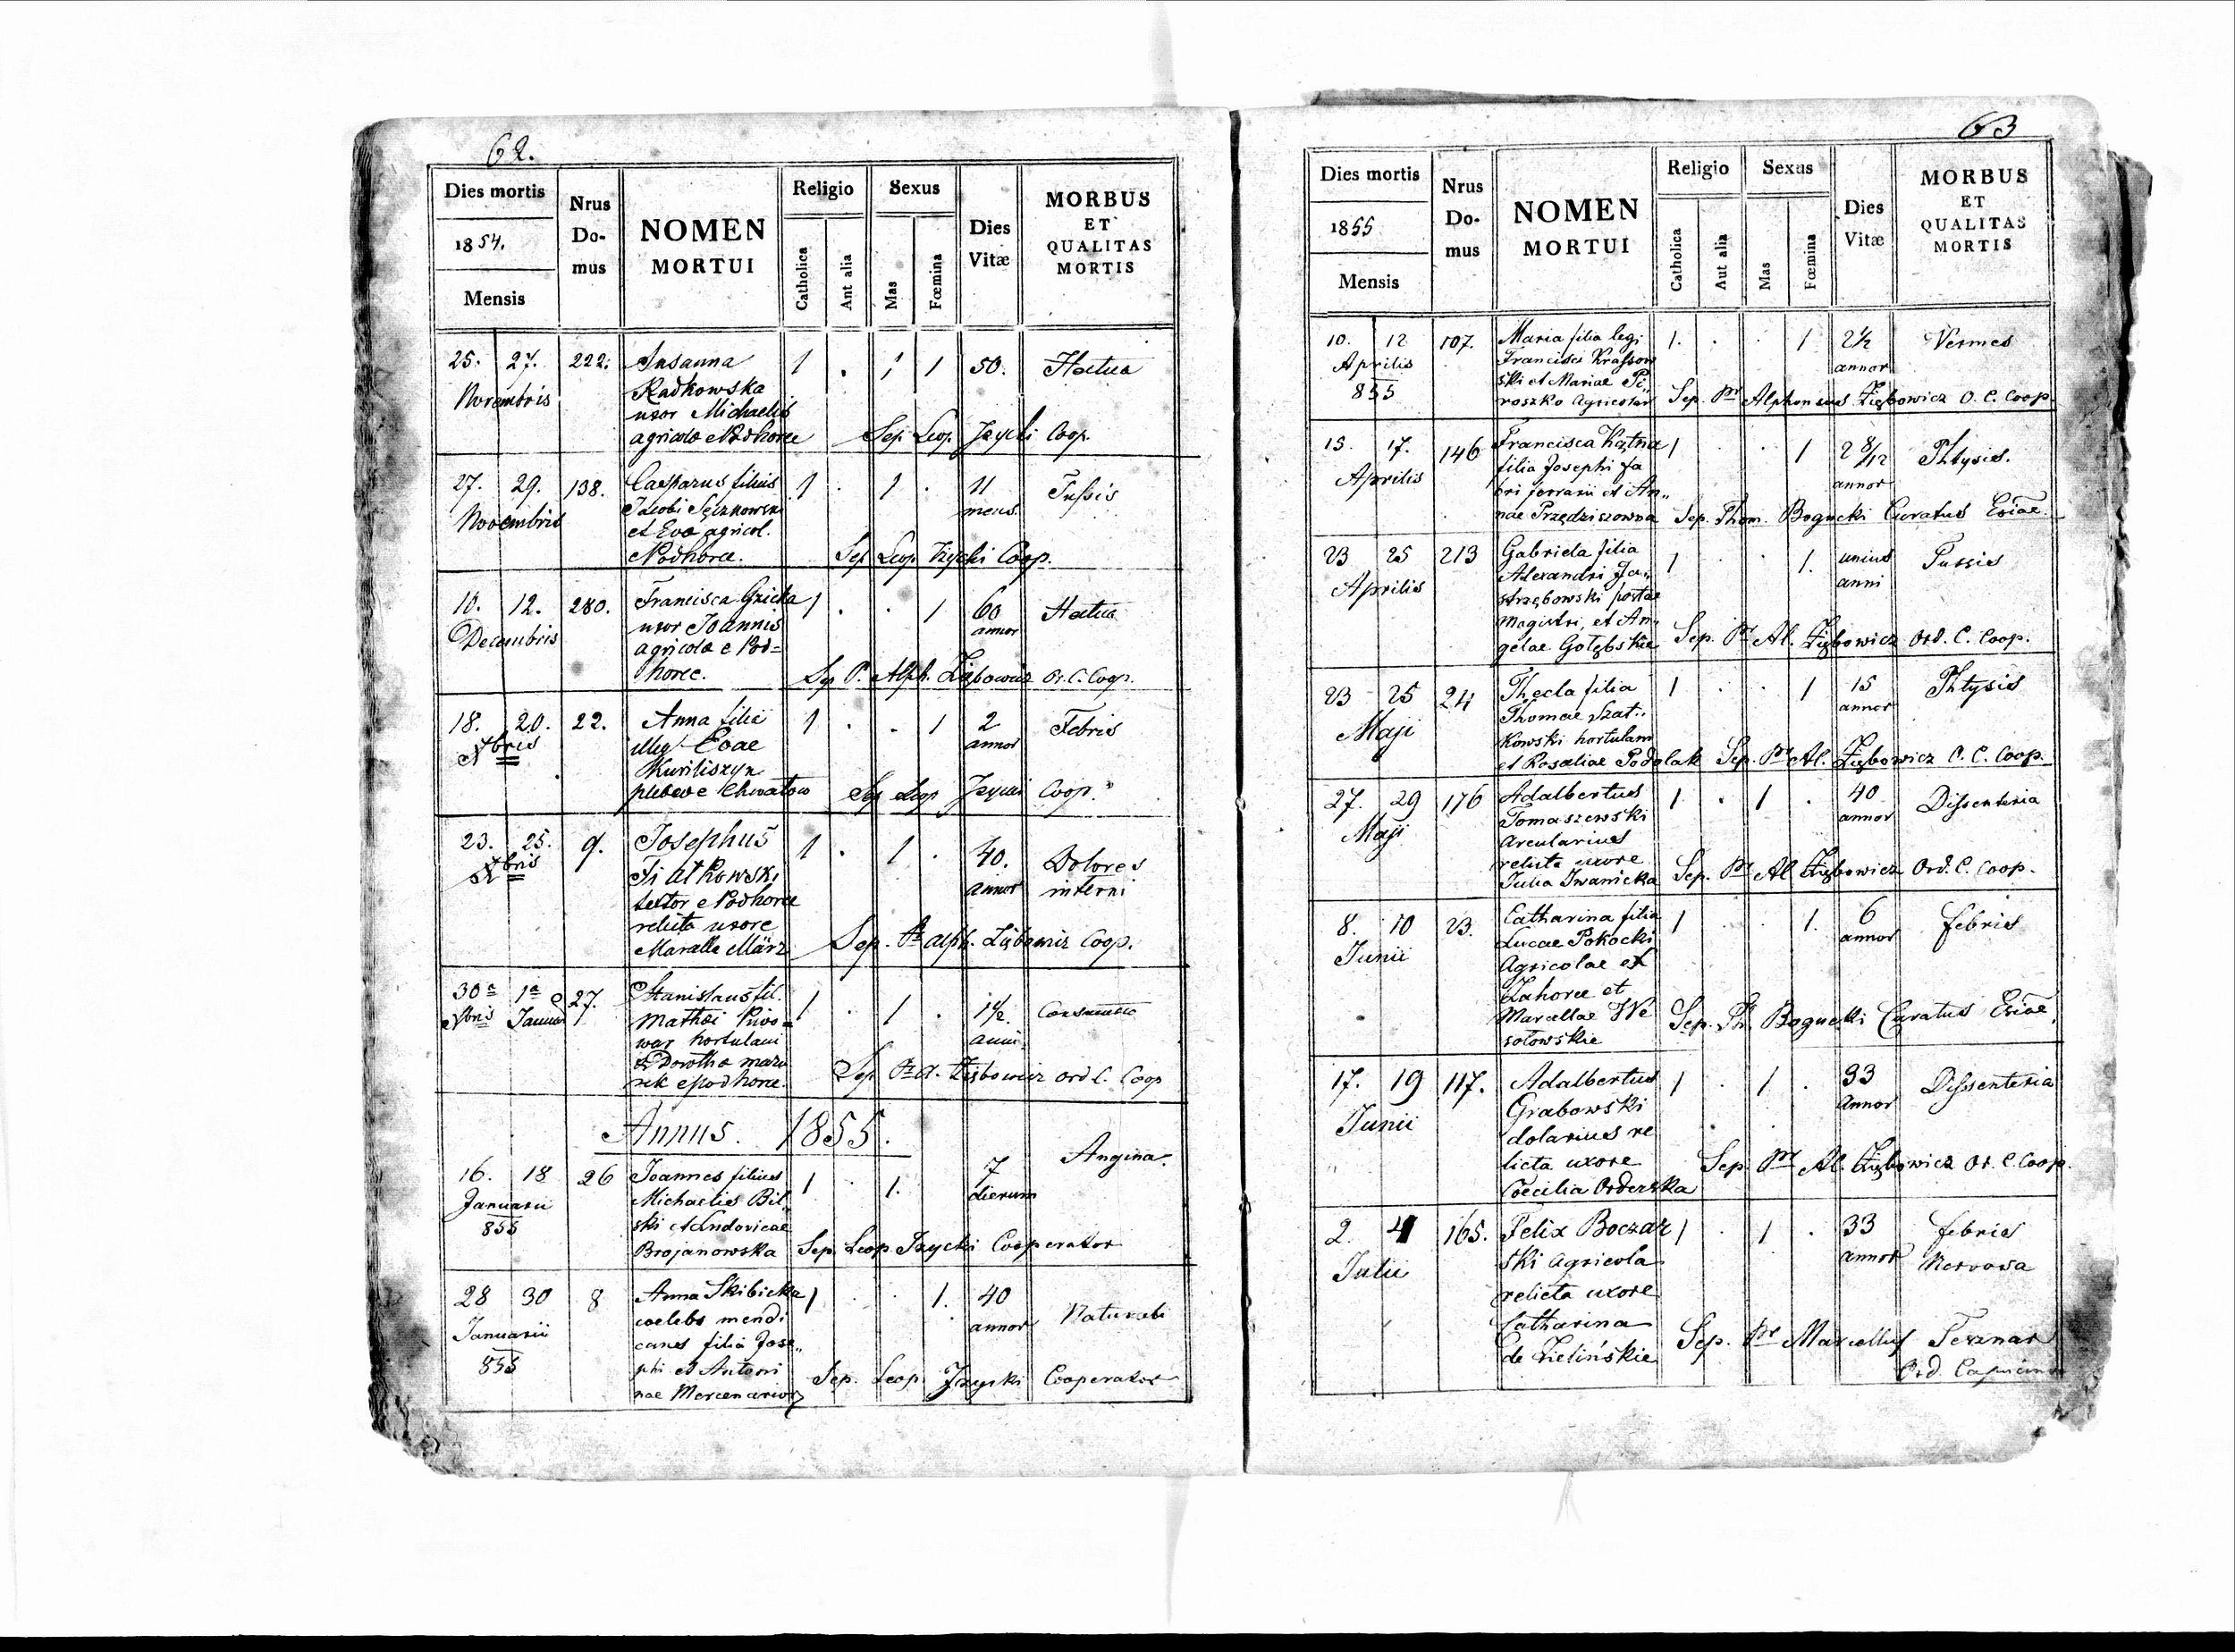 62.
Dies mortis
1854.
Mensis
Nrus Do- mus
NOMEN MORTUI
Religio
Catholica
Ant alia
Sexus
Mas
Fœmina
Dies Vitæ
MORBUS ET QUALITAS MORTIS
25. 27. 222. Susanna 1 . 1 1 50. Hectica
Novembris Radkowska
uxor Michaelis
agricolæ e Podhorce Sep. Leop. Jzycki Coop.
27. 29. 138. Casparus filius 1 . 1 . 11 Tussis
Novembris Jacobi mens.
et Evæ agricol.
e Podhorce. Sep Leop Jzycki Coop.
10. 12. 280. Francisca 1 . . 1 60 Hectica
Decembris uxor Joannis annor
agricolæ e Pod=
horce. Sep P. Alph. Ziębowicz Or. C. Coop.
18. 20. 22. Anna filia 1 . . 1 2 Febris
Xbris illeg. Evae annor
Kuriliszyn
plebeæ e Chwatow Sep Leop Jzycki Coop.
23. 25. 9. Josephus 1 . 1 . 40. Dolores
Xbris annor interni
textor e Podhorce
relicta uxore
März Sep. Pr Alph. Ziębowicz Coop.
30a 1a 27. Stanislaus fil. 1 . 1 . 1½.
Xbris Januar Mathæi Piwo= anni
war hortulani
et Dorothæ Mazu
rek e Podhorce. Sep Pr A. Ziębowicz Ord C. Coop
Annus. 1855.
16. 18 26 Joannes filius 1 . 1. 7 Angina.
Januarii Michaelis Bil dierum
855 ski et Ludovicae
Brojanowska Sep. Leop. Jzycki Cooperator
28 30 8 Anna Skibicka 1 . . 1. 40 Naturali
Januarii coelebs mendi annor
855 cans filia Jose„
phi et Antoni
nae Mercenarior Sep. Leop. Jzycki Cooperator
63
Dies mortis
1855
Mensis
Nrus Do- mus
NOMEN MORTUI
Religio
Catholica
Aut alia
Sexus
Mas
Fœmina
Dies Vitæ
MORBUS ET QUALITAS MORTIS
10. 12 107. Maria filia legi 1. . . 1 2½ Vermes
Aprilis Francisci Krassow annor
855 ski et Mariae Pi„
roszko Agricolar Sep. Pr Alphonsus Ziębowicz O. C. Coop
15. 17. 146 Francisca Kątna 1 . . 1 2 8/12 Phtysis.
Aprilis filia Josephi fa annor
bri ferrarii et An„
nae Przędziszowna Sep. Thom. Bogucki Curatus Eciae.
23 25 213 Gabriela filia 1 . . 1. unius Tussis
Aprilis Alexandri Ja„ anni
strzębowski postae
Magistri, et An„
gelae Gołębskie Sep. Pr Al. Ziębowicz Ord. C. Coop.
23 25 24 Thecla filia 1 . . 1 15 Phtysis
Maji Thomae Szat„ annor
kowski hortulani
et Rosaliae Podolak Sep. Pr Al. Ziębowicz O. C. Coop.
27. 29 176 Adalbertus 1 . 1 . 40 Dissenteria
Maji Tomaszewski annor
Arcularius
relicta uxore
Julia Iwanicka Sep. Pr Al Ziębowicz Ord. C. Coop.
8. 10 23. Catharina filia 1 . . 1. 6 febris
Junii Lucae Pokocki annor
Agricolae ex
Zahorce et
Marcellae We
sołowskie Sep. Th. Bogucki Curatus Eciae.
17. 19 117. Adalbertus 1 . 1 . 33 Dissenteria
Junii Grabowski Annor
dolarius re
licta uxore Sep. Pr Al. Ziębowicz Or. C. Coop.
Coecilia Orderska
2. 4 165. Felix Boczar 1 . 1 . 33 febris
Julii ski Agricola annor Nervosa
relicta uxore
Catharina
de Zielińskie Sep. Pr Marcellus Terznar
Ord. Capucino